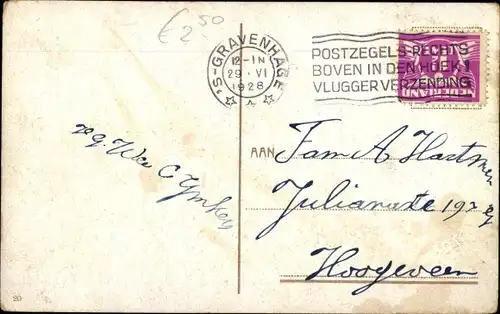 € 2 50
'S-GRAVENHAGE
12-1N
29.VI
1928
POSTZEGELS RECHTS
BOVEN IN DEN HOEK!
VLUGGER VERZENDING
NEDERLAND
AAN
Fam A Hartman
Julianastr 197
Hoogeveen
20